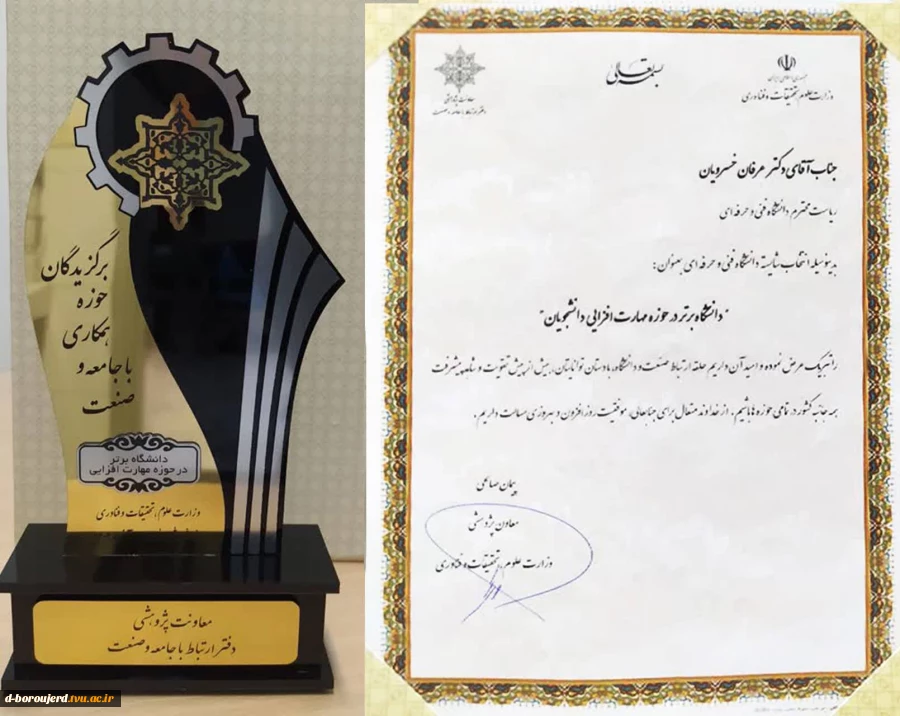 برگزیدگان
حوزه
همکاری
با جامعه و
صنعت
دانشگاه برتر
در حوزه مهارت افزایی
وزارت علوم، تحقیقات و فناوری
معاونت پژوهشی
دفتر ارتباط با جامعه و صنعت
d-boroujerd.tvu.ac.ir
بسمه تعالی
جمهوری اسلامی ایران
وزارت علوم، تحقیقات و فناوری
معاونت پژوهشی
دفتر ارتباط با جامعه و صنعت
جناب آقای دکتر عرفان خسرویان
ریاست محترم دانشگاه فنی و حرفه ای
بدینوسیله انتخاب شایسته دانشگاه فنی و حرفه ای بعنوان :
"دانشگاه برتر در حوزه مهارت افزایی دانشجویان"
را تبریک عرض نموده و امید آن داریم حلقه ارتباط صنعت و دانشگاه، با دستان توانایتان، بیش از پیش تقویت و شاهد پیشرفت
همه جانبه کشور در تمامی حوزه ها باشیم . از خداوند متعال برای جنابعالی، موفقیت روز افزون و بهروزی مسالت داریم .
پیمان صالحی
معاون پژوهشی
وزارت علوم، تحقیقات و فناوری